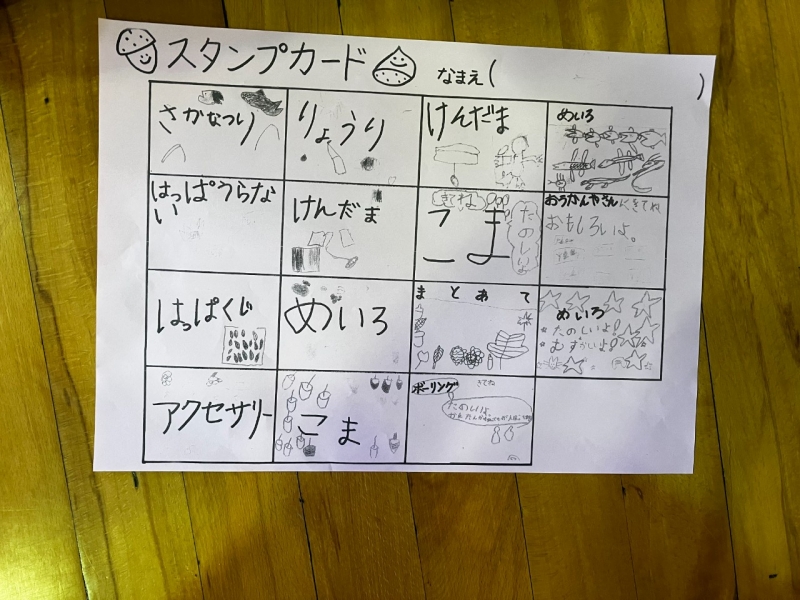 スタンプカード
なまえ( )
さかなつり
りょうり
けんだま
めいろ
はっぱうらな
い
けんだま
きてね
こま
たのしいよ
おうかんやさんにきてね
おもしろいよ。
はっぱくじ
めいろ
まとあて
めいろ
たのしいよ!
むずかしいよ!
アクセサリー
こま
ボーリング
きてね
たのしいよ